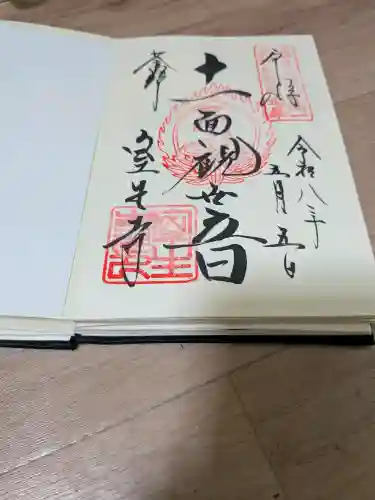 奉拝
令和八年
五月五日
十一面観世音
室生寺